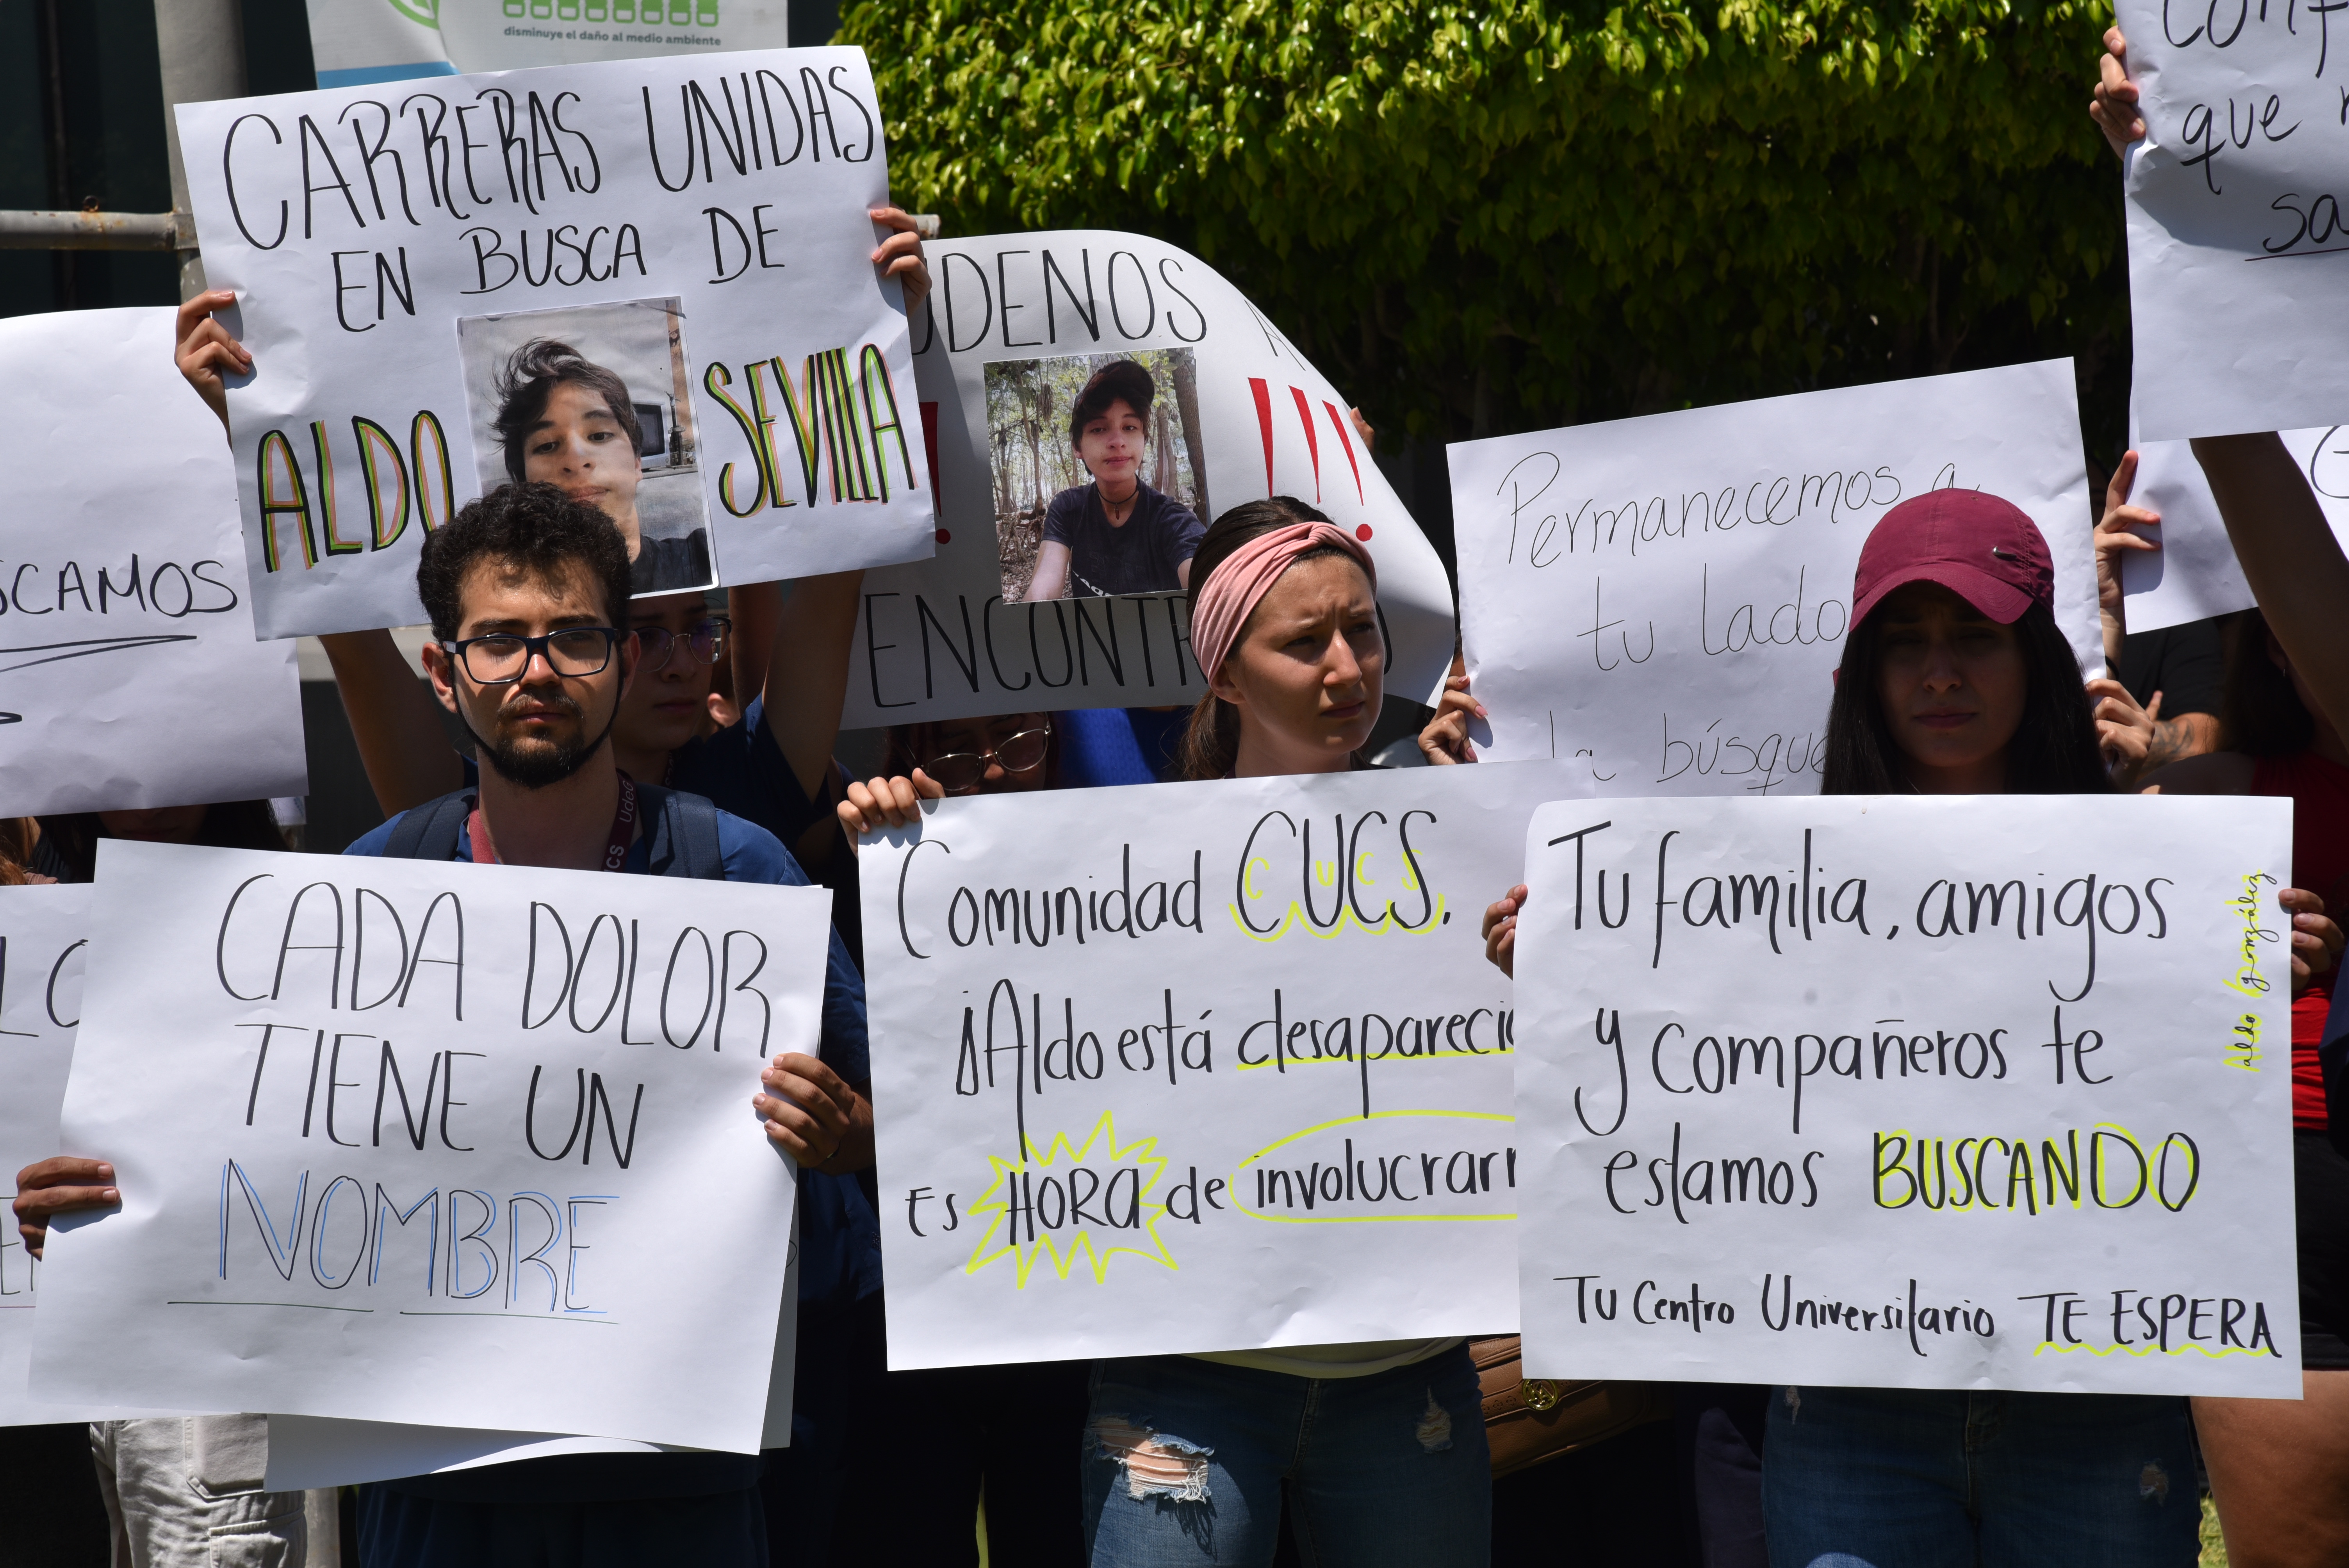 disminuye el daño al medio ambiente
CARRERAS UNIDAS
EN BUSCA DE
ALDO SEVILLA
UDENOS A
!!!
ENCONTR
SCAMOS
Permanecemos a
tu lado
la búsque
que
sa
LO
CADA DOLOR
TIENE UN
NOMBRE
UdeG
CS
Comunidad CUCS.
CUCS
¡Aldo está desapareci
Es HORA de involucrarn
Tu familia, amigos
y compañeros te
estamos BUSCANDO
Tu Centro Universitario TE ESPERA
Aldo González